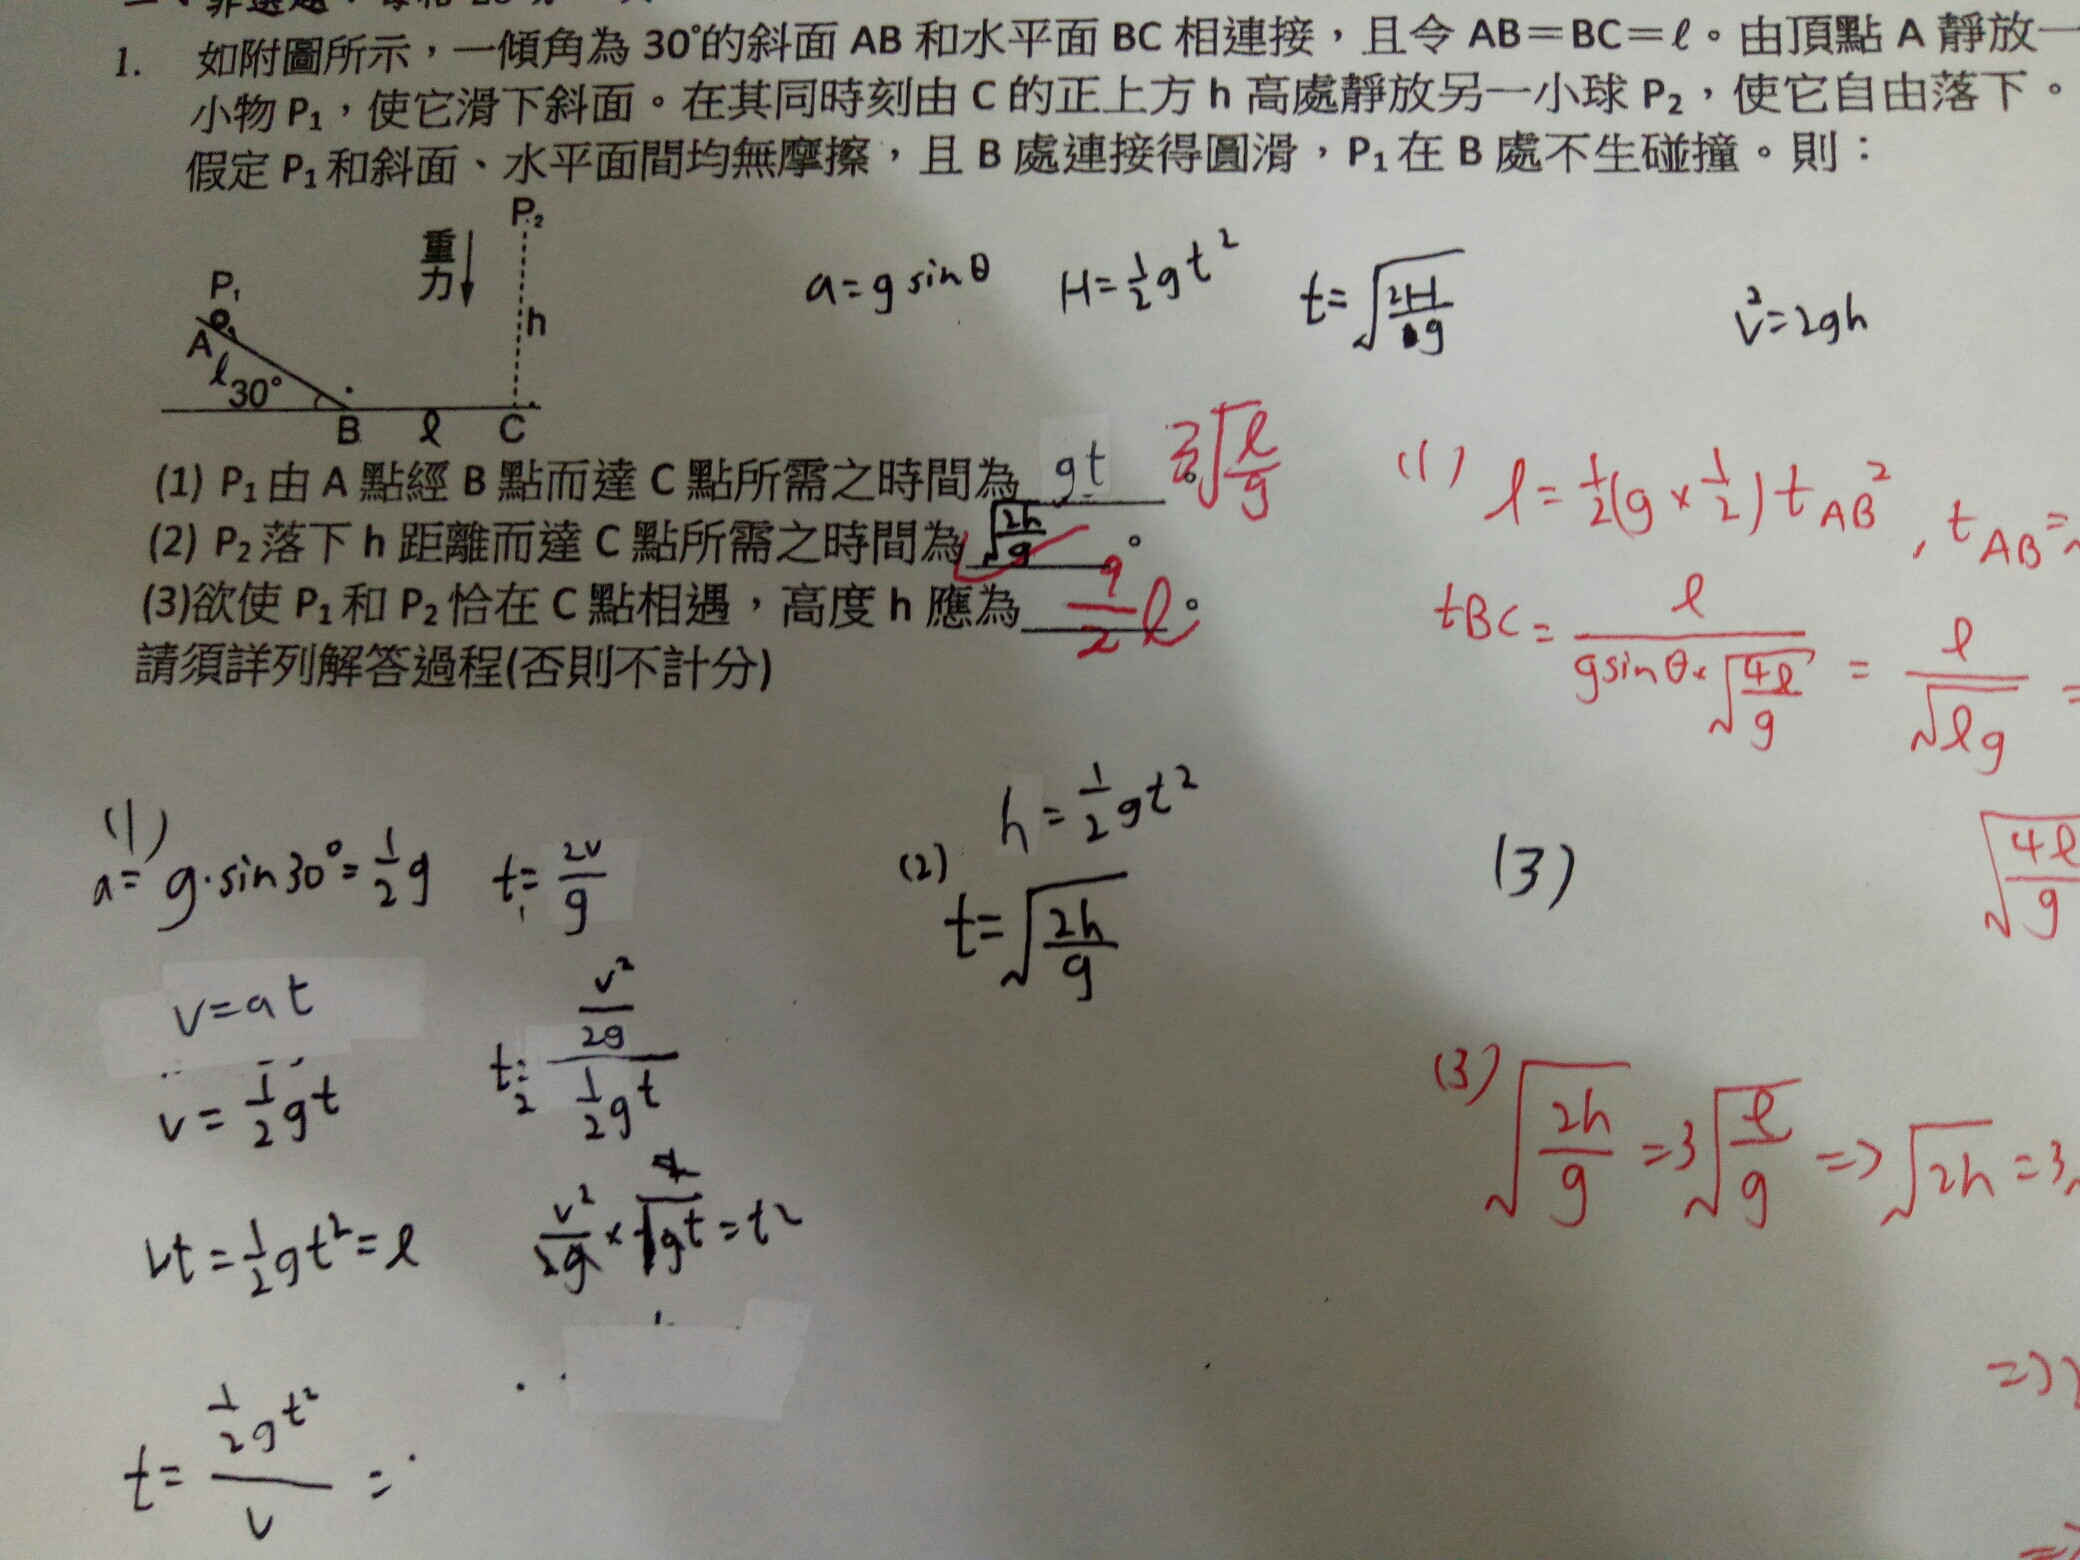 1. 如附圖所示，一傾角為 30°的斜面 AB 和水平面 BC 相連接，且令 AB＝BC＝ℓ。由頂點 A 靜放一
小物 P₁，使它滑下斜面。在其同時刻由 C 的正上方 h 高處靜放另一小球 P₂，使它自由落下。
假定 P₁ 和斜面、水平面間均無摩擦，且 B 處連接得圓滑，P₁ 在 B 處不生碰撞。則：
P₂
重力
P₁
h
A
ℓ
30°
B ℓ C
a=g sinθ H=½gt² t=√(2H/g) v²=2gh
(1) P₁ 由 A 點經 B 點而達 C 點所需之時間為 gt 。 3√(ℓ/g)
(2) P₂ 落下 h 距離而達 C 點所需之時間為 √(2h/g) 。
(3)欲使 P₁ 和 P₂ 恰在 C 點相遇，高度 h 應為 9/2 ℓ 。
請須詳列解答過程(否則不計分)
(1) ℓ=½(g×½)t_AB² , t_AB=
t_BC = ℓ/(g sinθ×√(4ℓ/g)) = ℓ/√(ℓg) =
(1)
a= g·sin30°=½g
v=at
v=½gt
vt=½gt²=ℓ
t= ½gt²/v =
t₁=2v/g
t₂= (v²/2g)/(½gt)
(2) h=½gt²
t=√(2h/g)
(3)
√(4ℓ/g)
(3) √(2h/g) =3√(ℓ/g) => √2h =3
=>